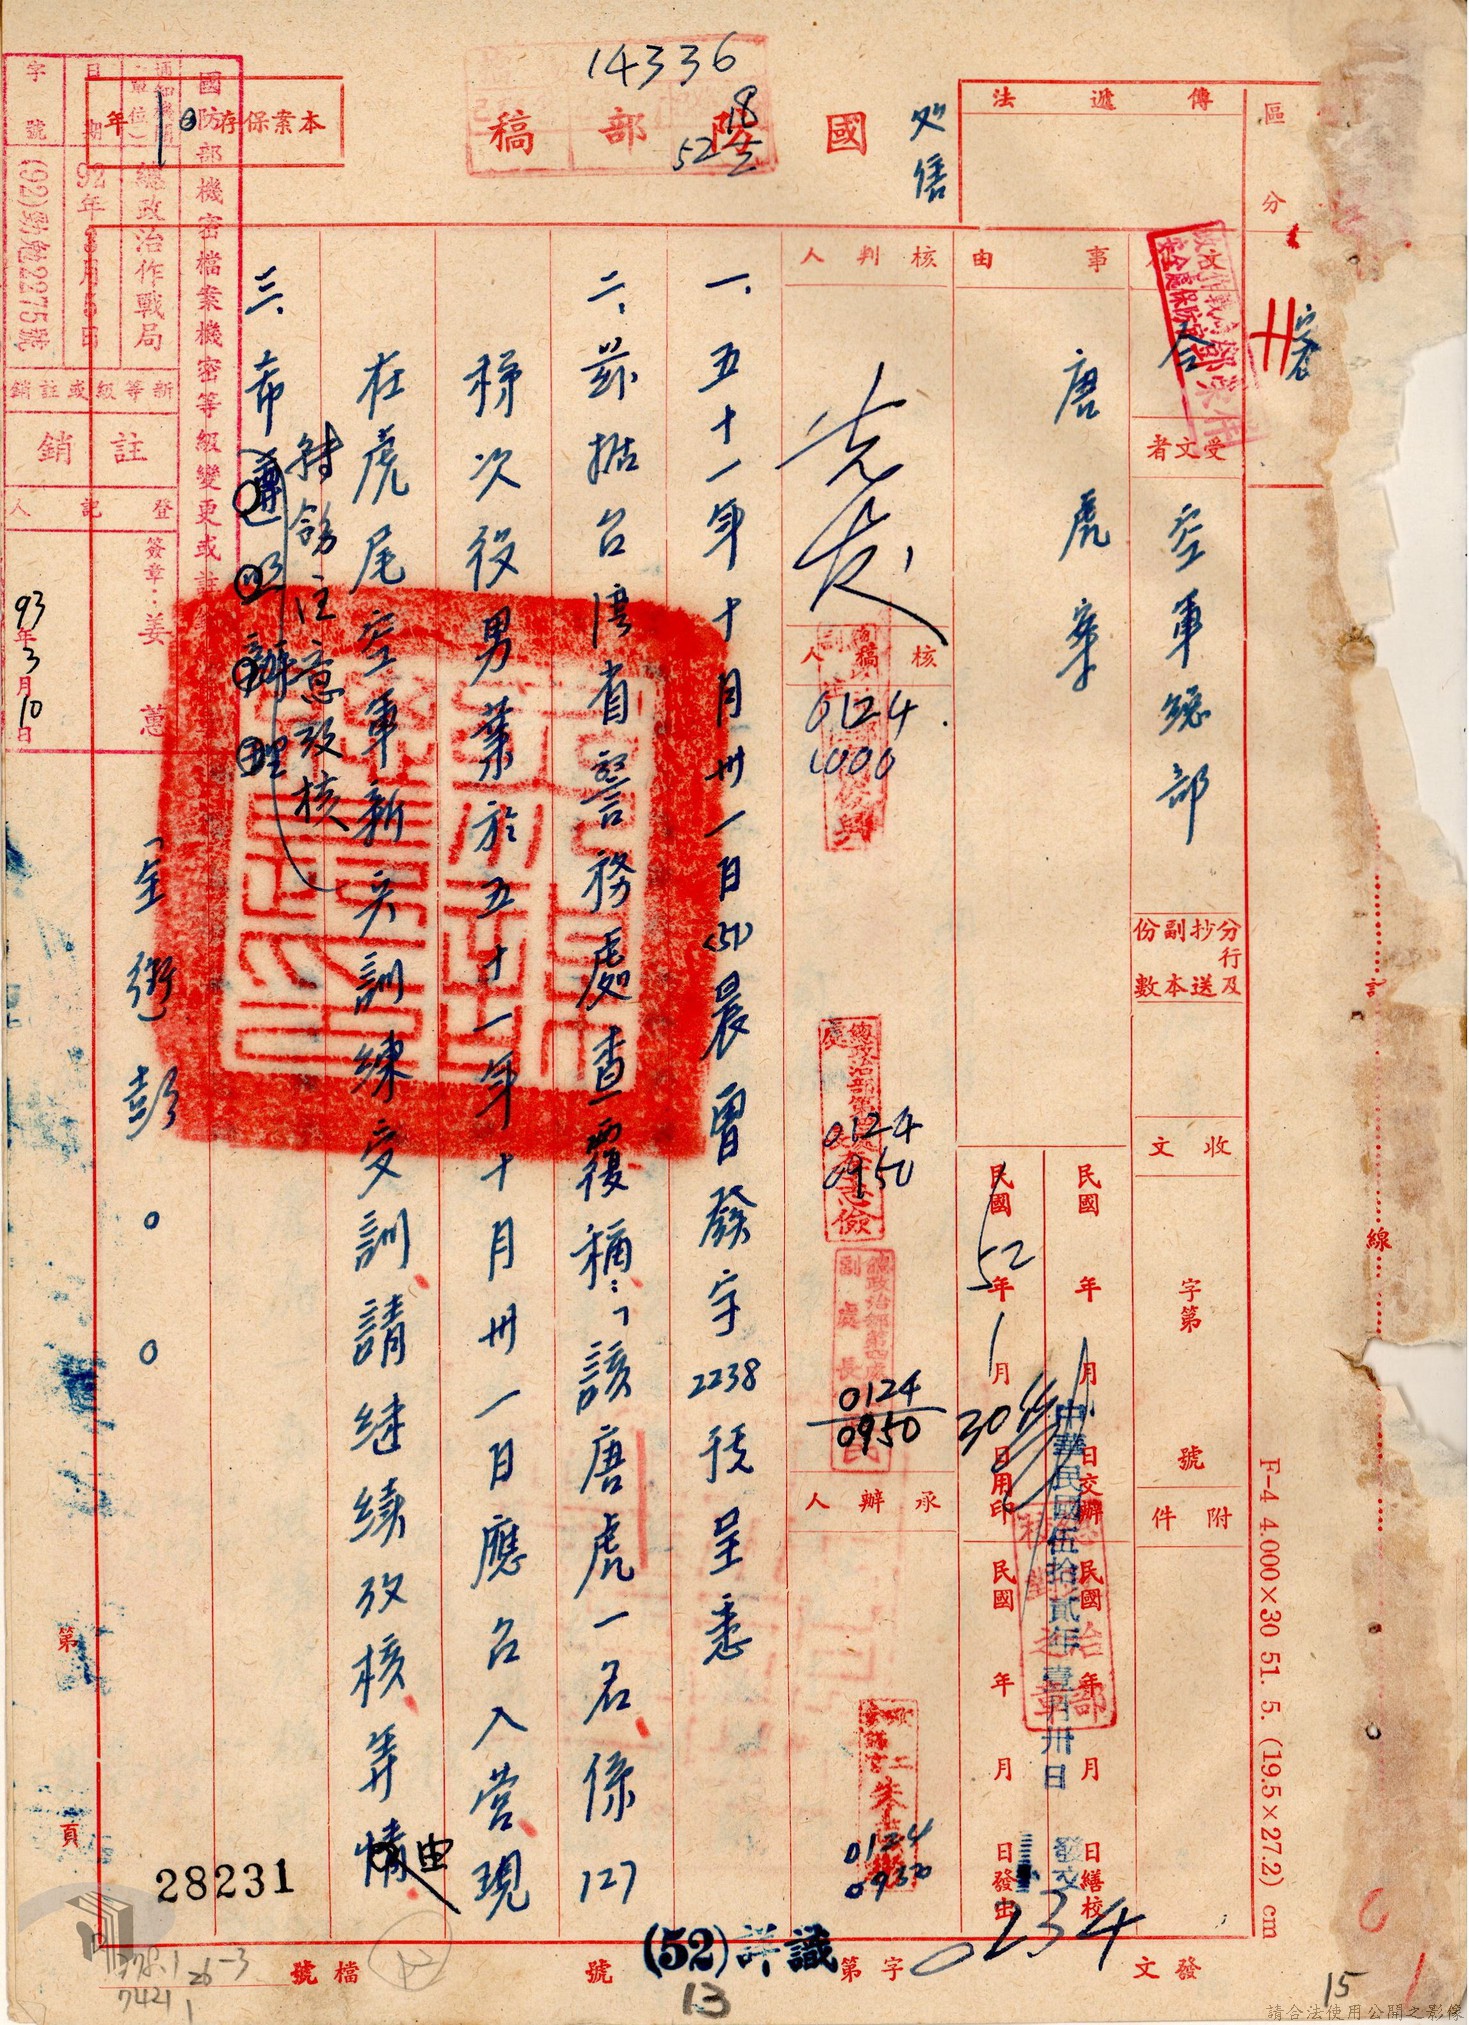 14336
18
52
國防部稿
繕
傳遞法
區分
本案保存 年
1
事由
唐虎案
令
受文者
空軍總部
分行及抄送副本份數
收文
字第 號
附件
核判人
核稿人
0124
1000
0124
0950
0124
0950
承辦人
0124
0930
民國 年 月 日交辦
民國 年 月 日繕校
民國52年1月30日用印
民國 年 月 日發出
中華民國伍拾貳年壹月卅日 發文
一、五十一年十月卅一日(51)晨曾發字2238號呈悉
二、茲据台湾省警務處查覆稱:「該唐虎一名係127
梯次役男業於五十一年十月卅一日應召入營現
在虎尾空軍新兵訓練受訓請継續攷核等情由
三、希遵照辦理
轉飭注意攷核
「全銜」彭○○
第 頁
28231
檔號
發文
字第 號
(52)詳識
0234
13
15
778.1
7421
26-3
1
F-4 4.000×30 51. 5. (19.5×27.2) cm
訂
線
國防部機密檔案機密等級變更或註
通知機關(單位)
總政治作戰局
日期
92年
字號
(92)勁勉2275號
新等級或註銷
註銷
登記人
簽章:姜蕙
93年3月10日
請合法使用公開之影像